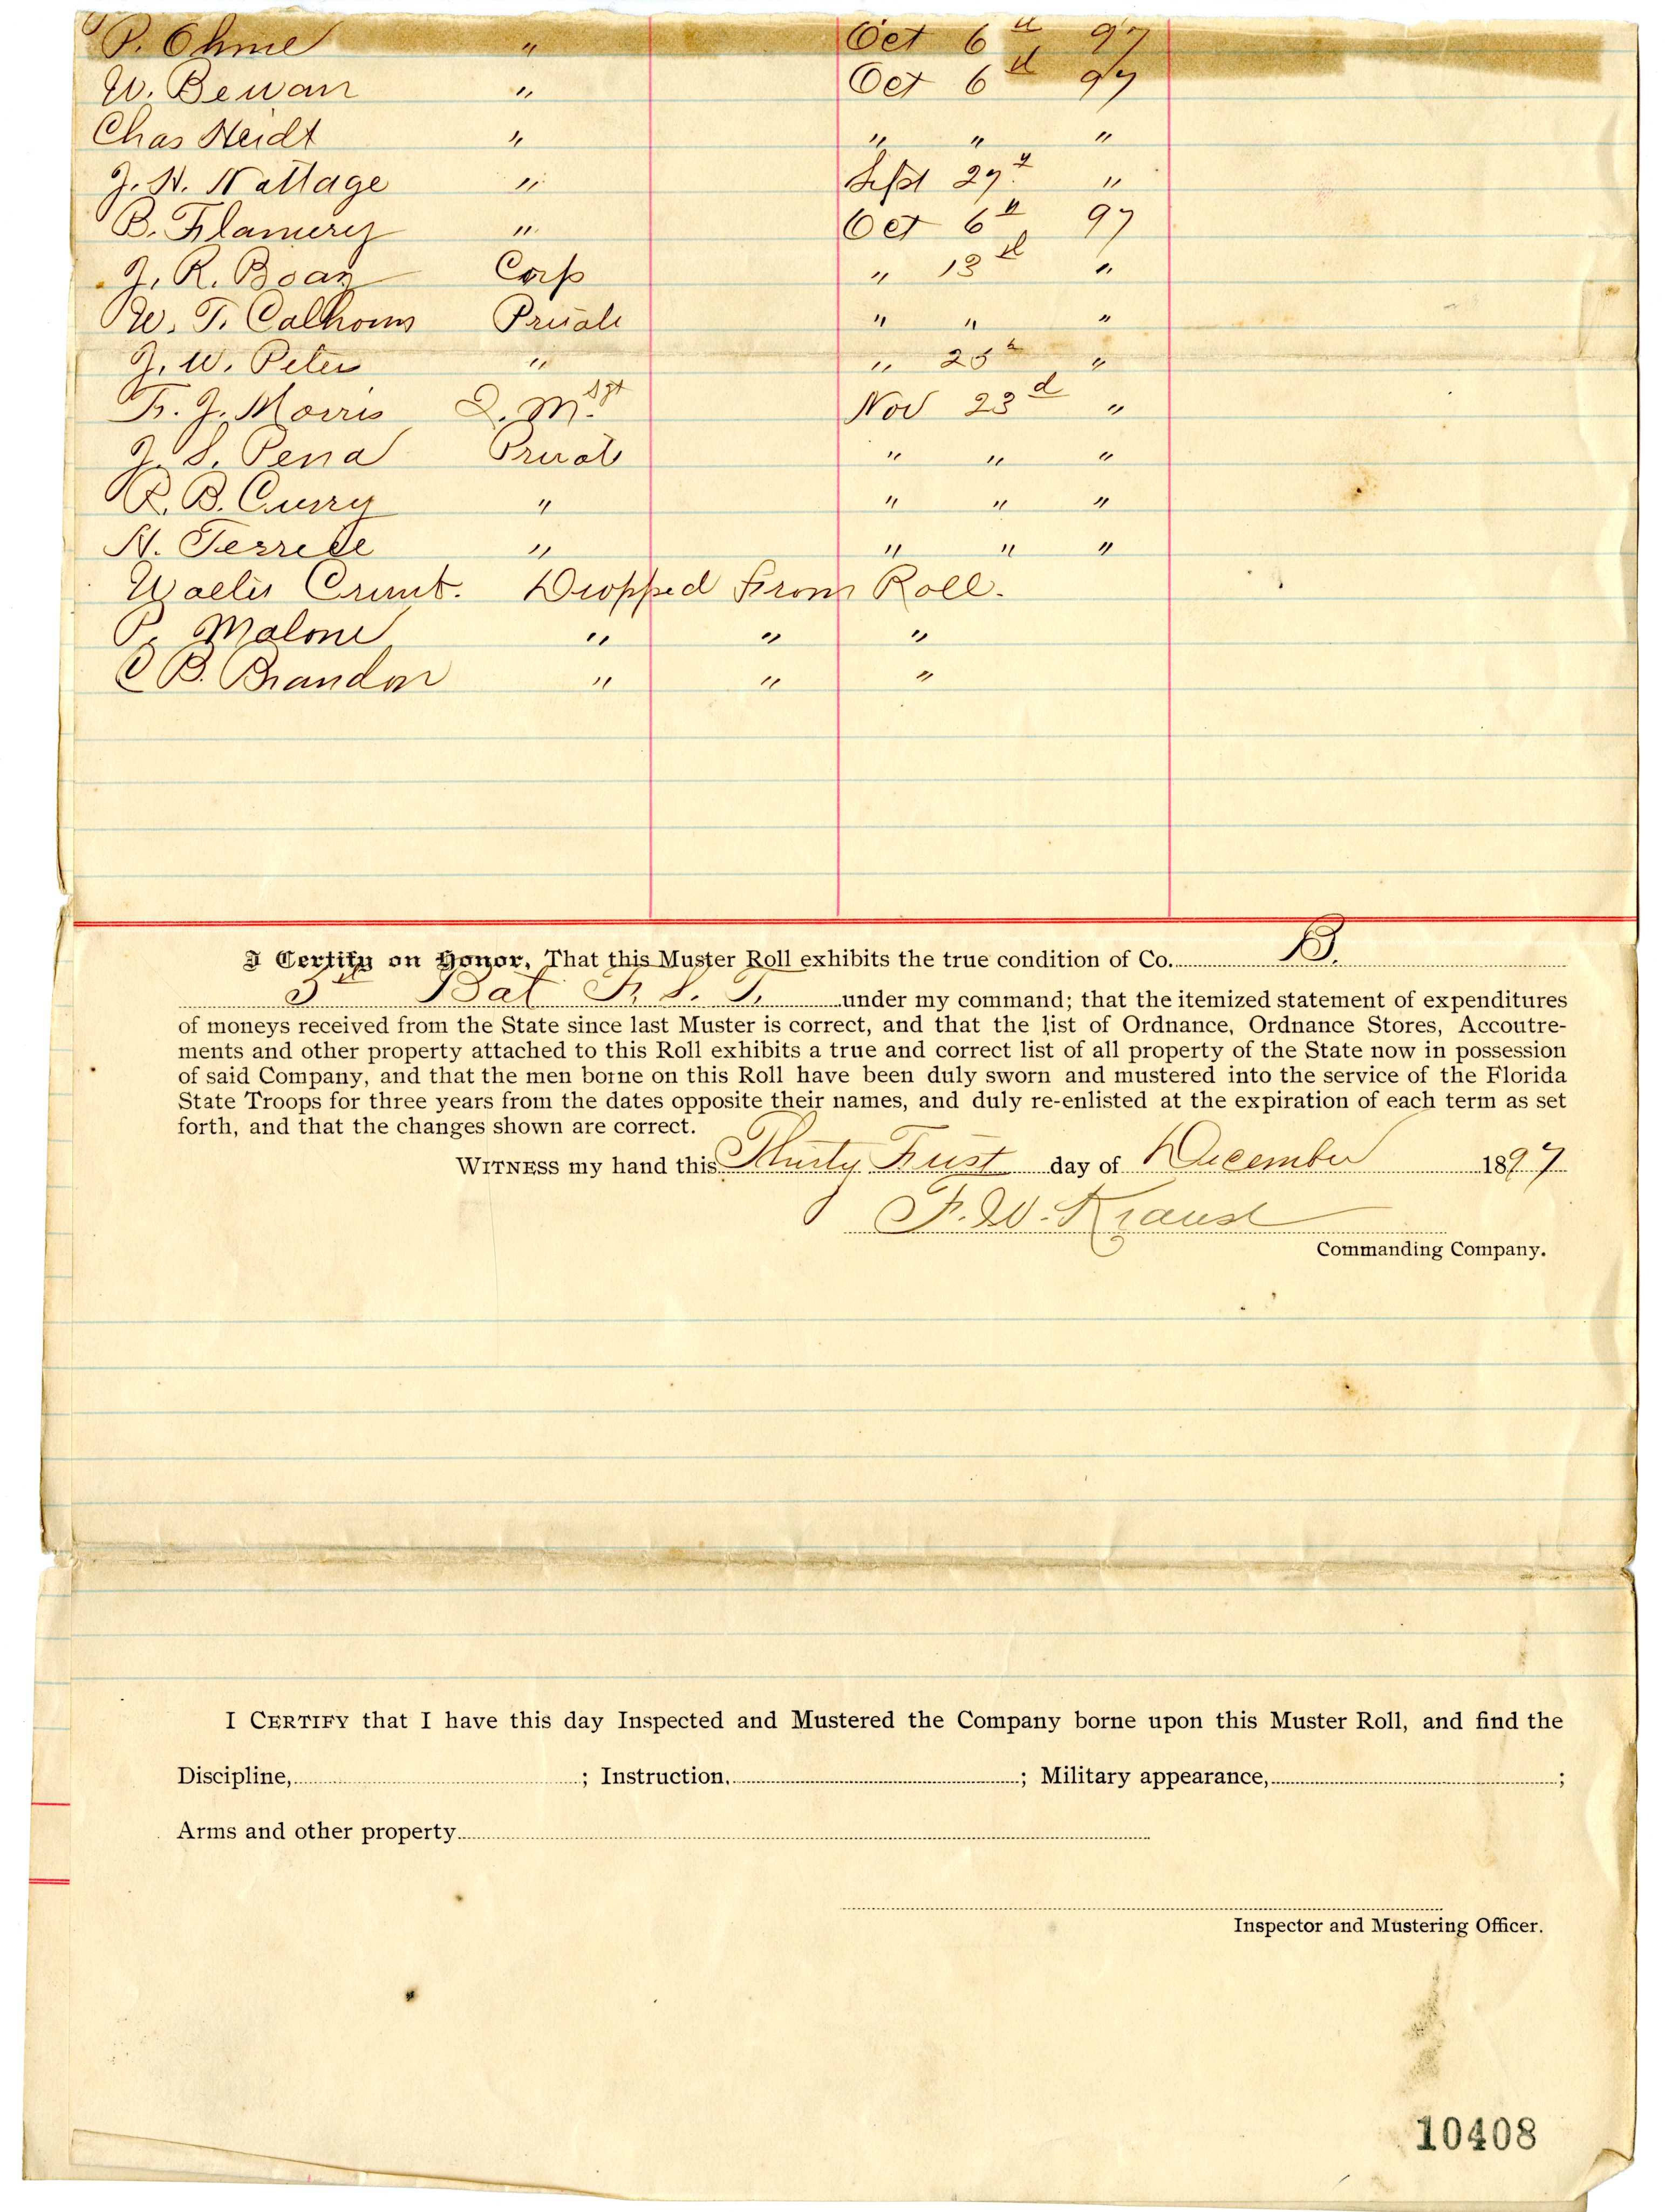 P. Ohme " Oct 6th 97
W. Bewan " Oct 6th 97
Chas Heidt " " " "
J. H. Nattage " Sept 27th "
B. Flamery " Oct 6th 97
J. R. Boaz Corp " 13th "
W. T. Calhoun Private " " "
J. W. Peter " " 25th "
Fr. J. Morris Q. M. Sgt Nov 23d "
J. S. Pena Private " " "
R. B. Curry " " " "
H. Terrell " " " "
Crumb. Dropped From Roll.
P. Malone " " "
C B. Brandon " " "
I Certify on Honor, That this Muster Roll exhibits the true condition of Co. B.
Bat F. S. T. under my command; that the itemized statement of expenditures
of moneys received from the State since last Muster is correct, and that the list of Ordnance, Ordnance Stores, Accoutre-
ments and other property attached to this Roll exhibits a true and correct list of all property of the State now in possession
of said Company, and that the men borne on this Roll have been duly sworn and mustered into the service of the Florida
State Troops for three years from the dates opposite their names, and duly re-enlisted at the expiration of each term as set
forth, and that the changes shown are correct.
WITNESS my hand this Thirty First day of December 1897
F. W. Krause
Commanding Company.
I CERTIFY that I have this day Inspected and Mustered the Company borne upon this Muster Roll, and find the
Discipline, ; Instruction, ; Military appearance, ;
Arms and other property
Inspector and Mustering Officer.
10408